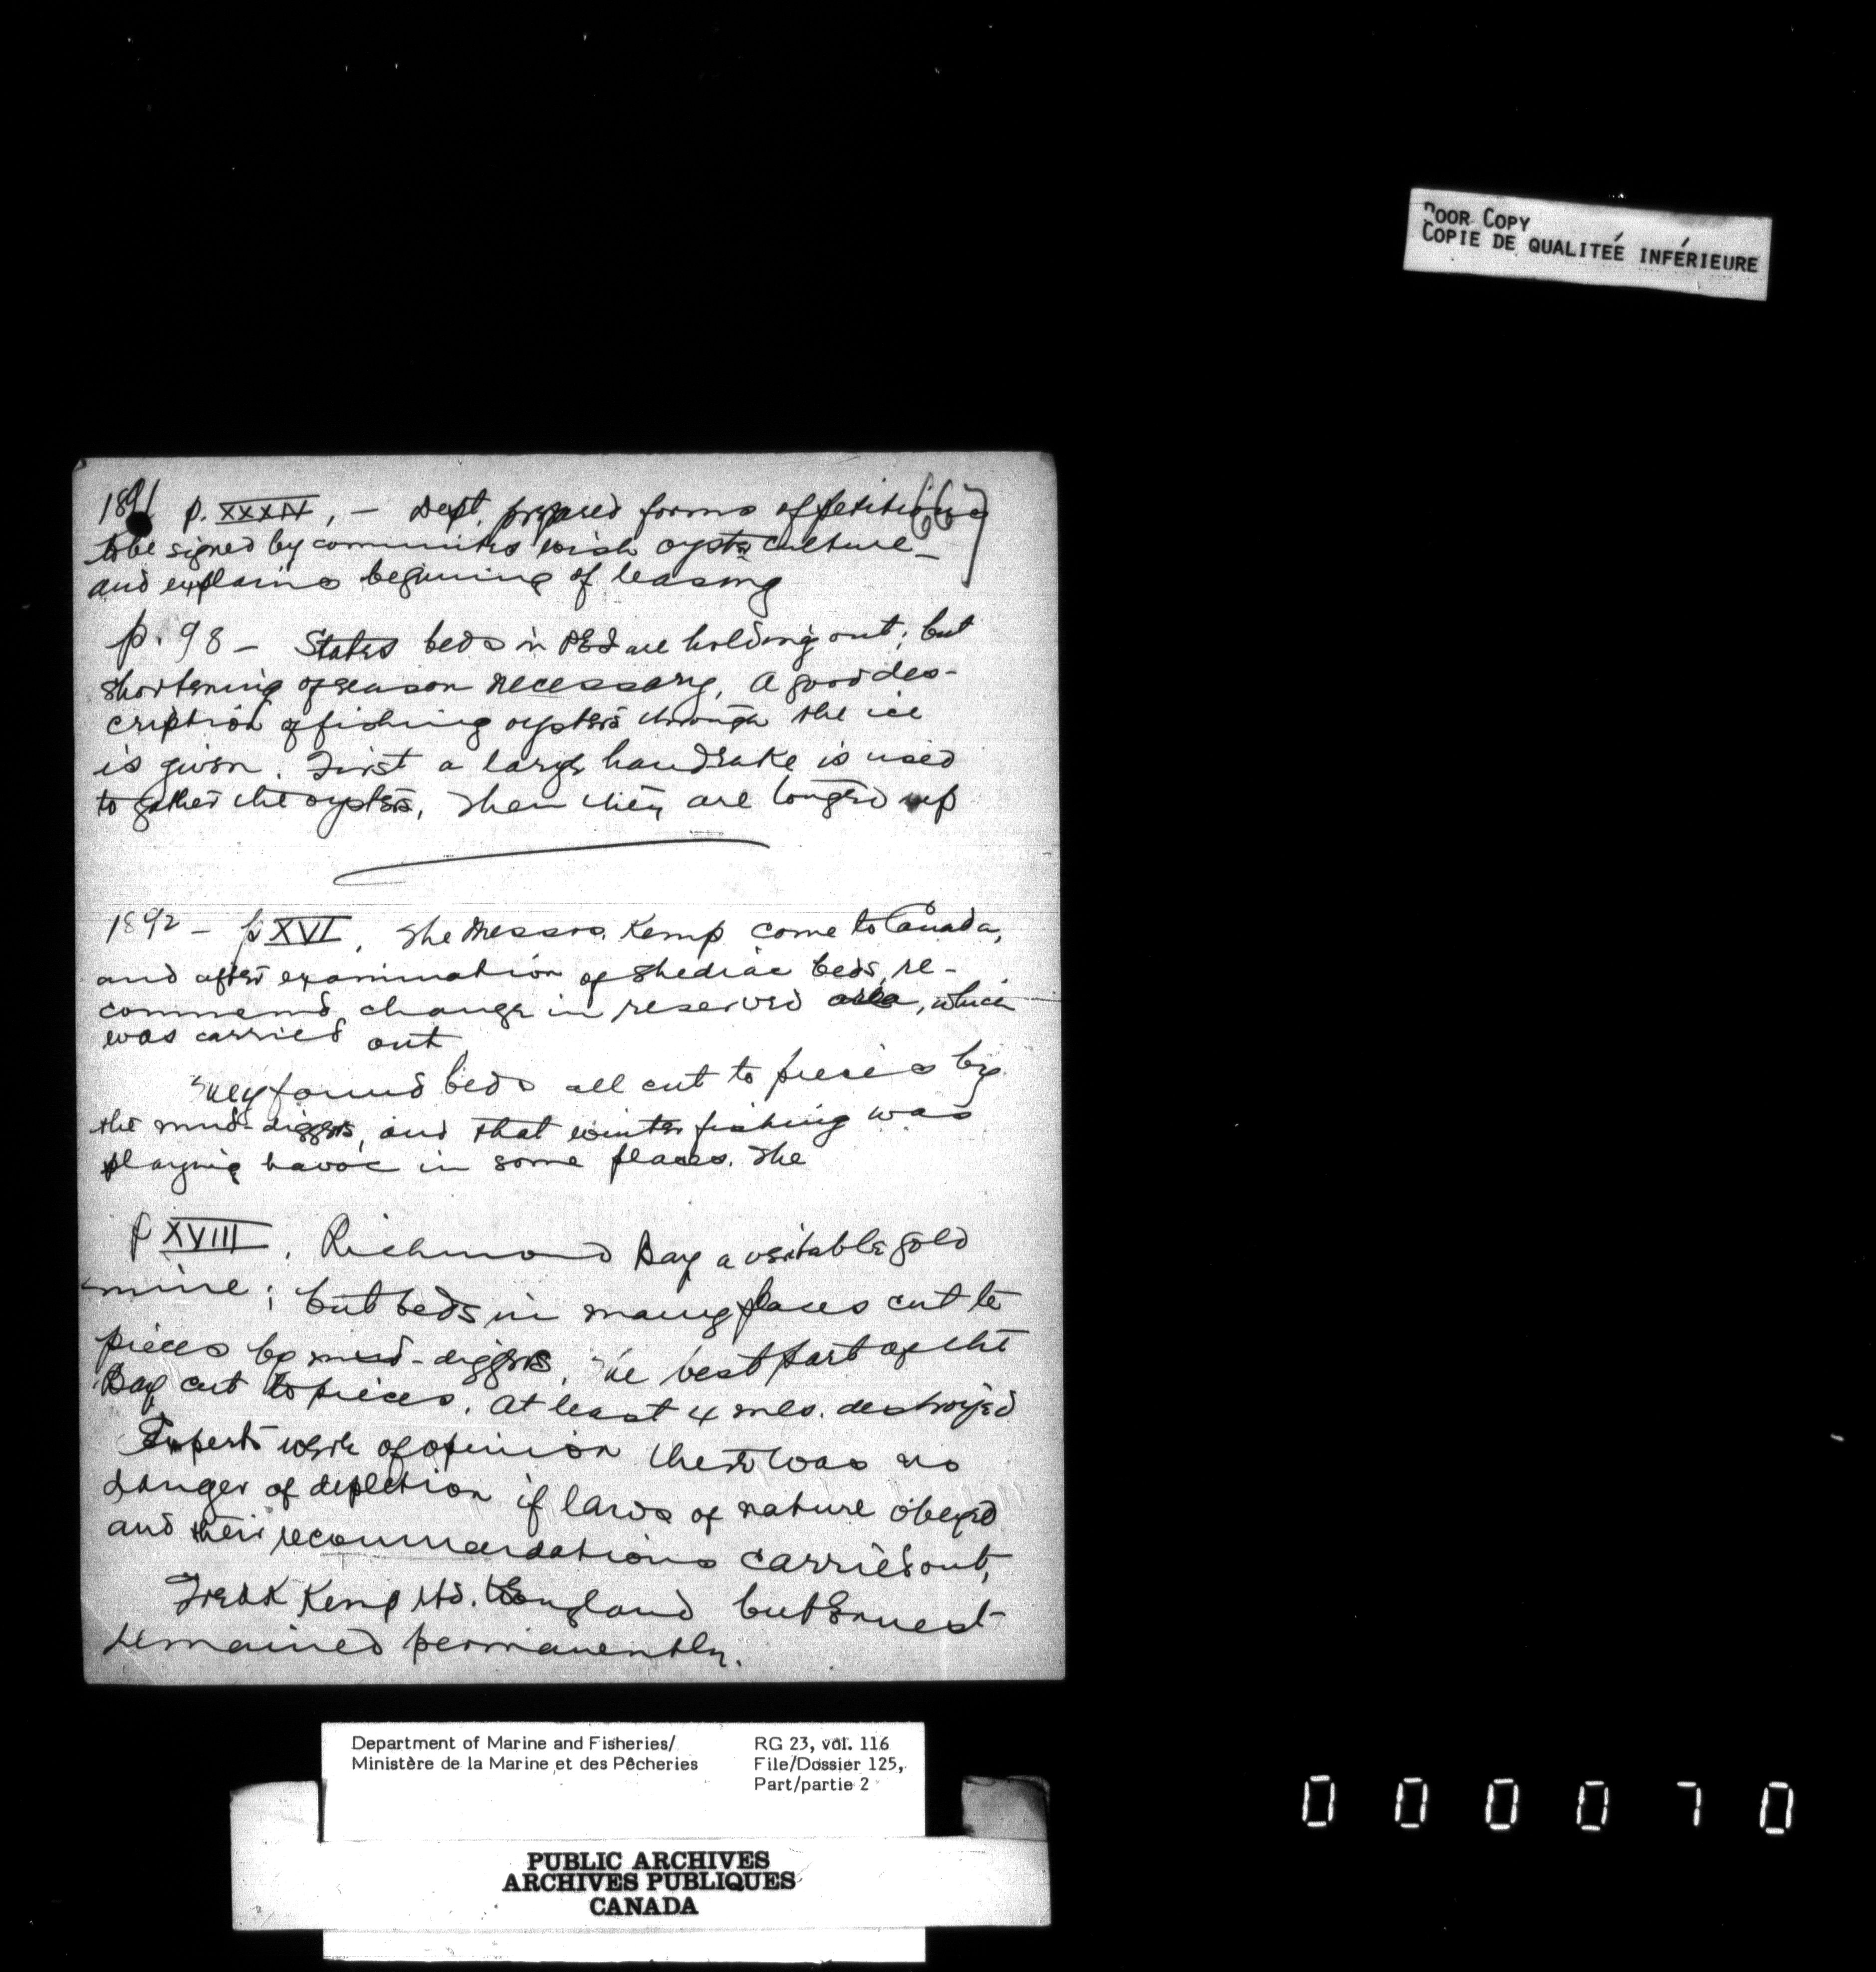 POOR COPY
COPIE DE QUALITEÉ INFÉRIEURE
667
1891 p. XXXIV, — Dept. prepared forms of petitions
to be signed by communities wish oyster culture —
and explains beginning of leasing
p. 98 — States beds in PEI are holding out; but
shortening of season necessary. A good des-
cription of fishing oysters through the ice
is given. First a large handrake is used
to gather the oysters, then they are tonged up
1892 — p XVI. The Messrs. Kemp come to Canada,
and after examination of Shediac beds, re-
commend change in reserved area, which
was carried out
They found beds all cut to pieces by
the mud-diggers, and that winter fishing was
playing havoc in some places. The
p XVIII. Richmond Bay a veritable gold
mine; but beds in many places cut to
pieces by mud-diggers. The best part of the
Bay cut to pieces. At least 4 mls. destroyed
Experts were of opinion there was no
danger of depletion if laws of nature obeyed
and their recommendations carried out,
Fredk Kemp rtd. to England but Ernest
remained permanently.
Department of Marine and Fisheries/
Ministère de la Marine et des Pêcheries
RG 23, vol. 116
File/Dossier 125,
Part/partie 2
PUBLIC ARCHIVES
ARCHIVES PUBLIQUES
CANADA
000070